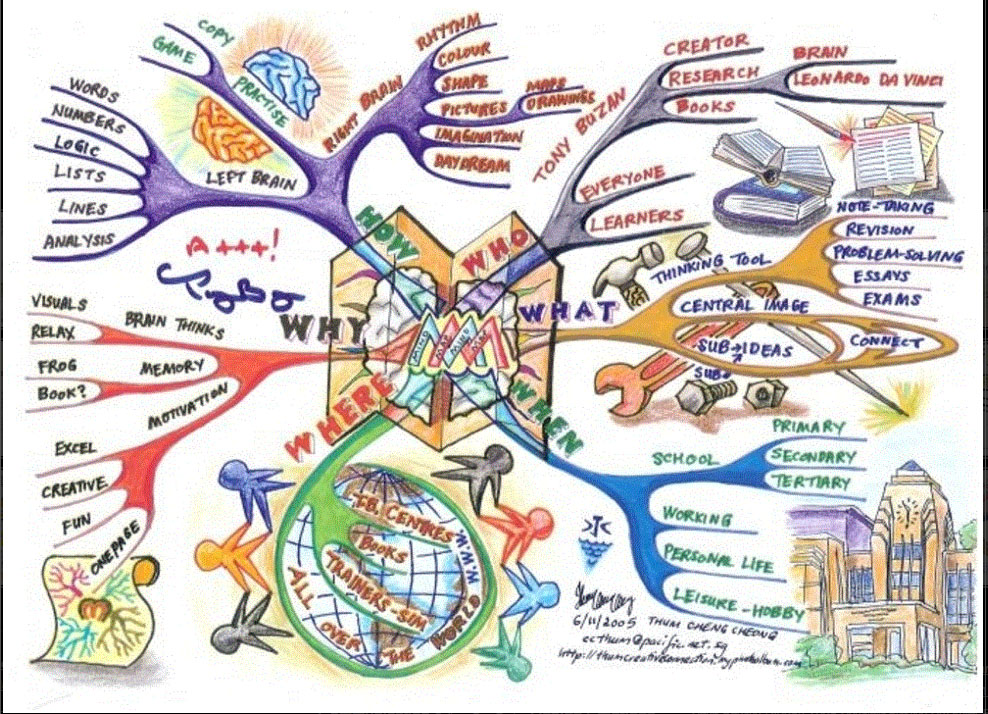 HOW
COPY
GAME
PRACTISE
LEFT BRAIN
WORDS
NUMBERS
LOGIC
LISTS
LINES
ANALYSIS
RIGHT BRAIN
RHYTHM
COLOUR
SHAPE
PICTURES
MAPS
DRAWINGS
IMAGINATION
DAYDREAM
WHO
TONY BUZAN
CREATOR
RESEARCH
BRAIN
LEONARDO DA VINCI
BOOKS
EVERYONE
LEARNERS
WHAT
THINKING TOOL
NOTE-TAKING
REVISION
PROBLEM-SOLVING
ESSAYS
EXAMS
CENTRAL IMAGE
SUB→IDEAS
SUB
CONNECT
A+++!
WHY
BRAIN THINKS
VISUALS
RELAX
MEMORY
FROG
BOOK?
MOTIVATION
EXCEL
CREATIVE
FUN
ONE PAGE
MM
WHERE
CENTRES
BOOKS
TRAINERS-SIM
ALL OVER THE WORLD
W.W.W
WHEN
SCHOOL
PRIMARY
SECONDARY
TERTIARY
WORKING
PERSONAL LIFE
LEISURE-HOBBY
>TC
6/11/2005 THUM CHENG CHEONG
ecthum@pacific.net.sg